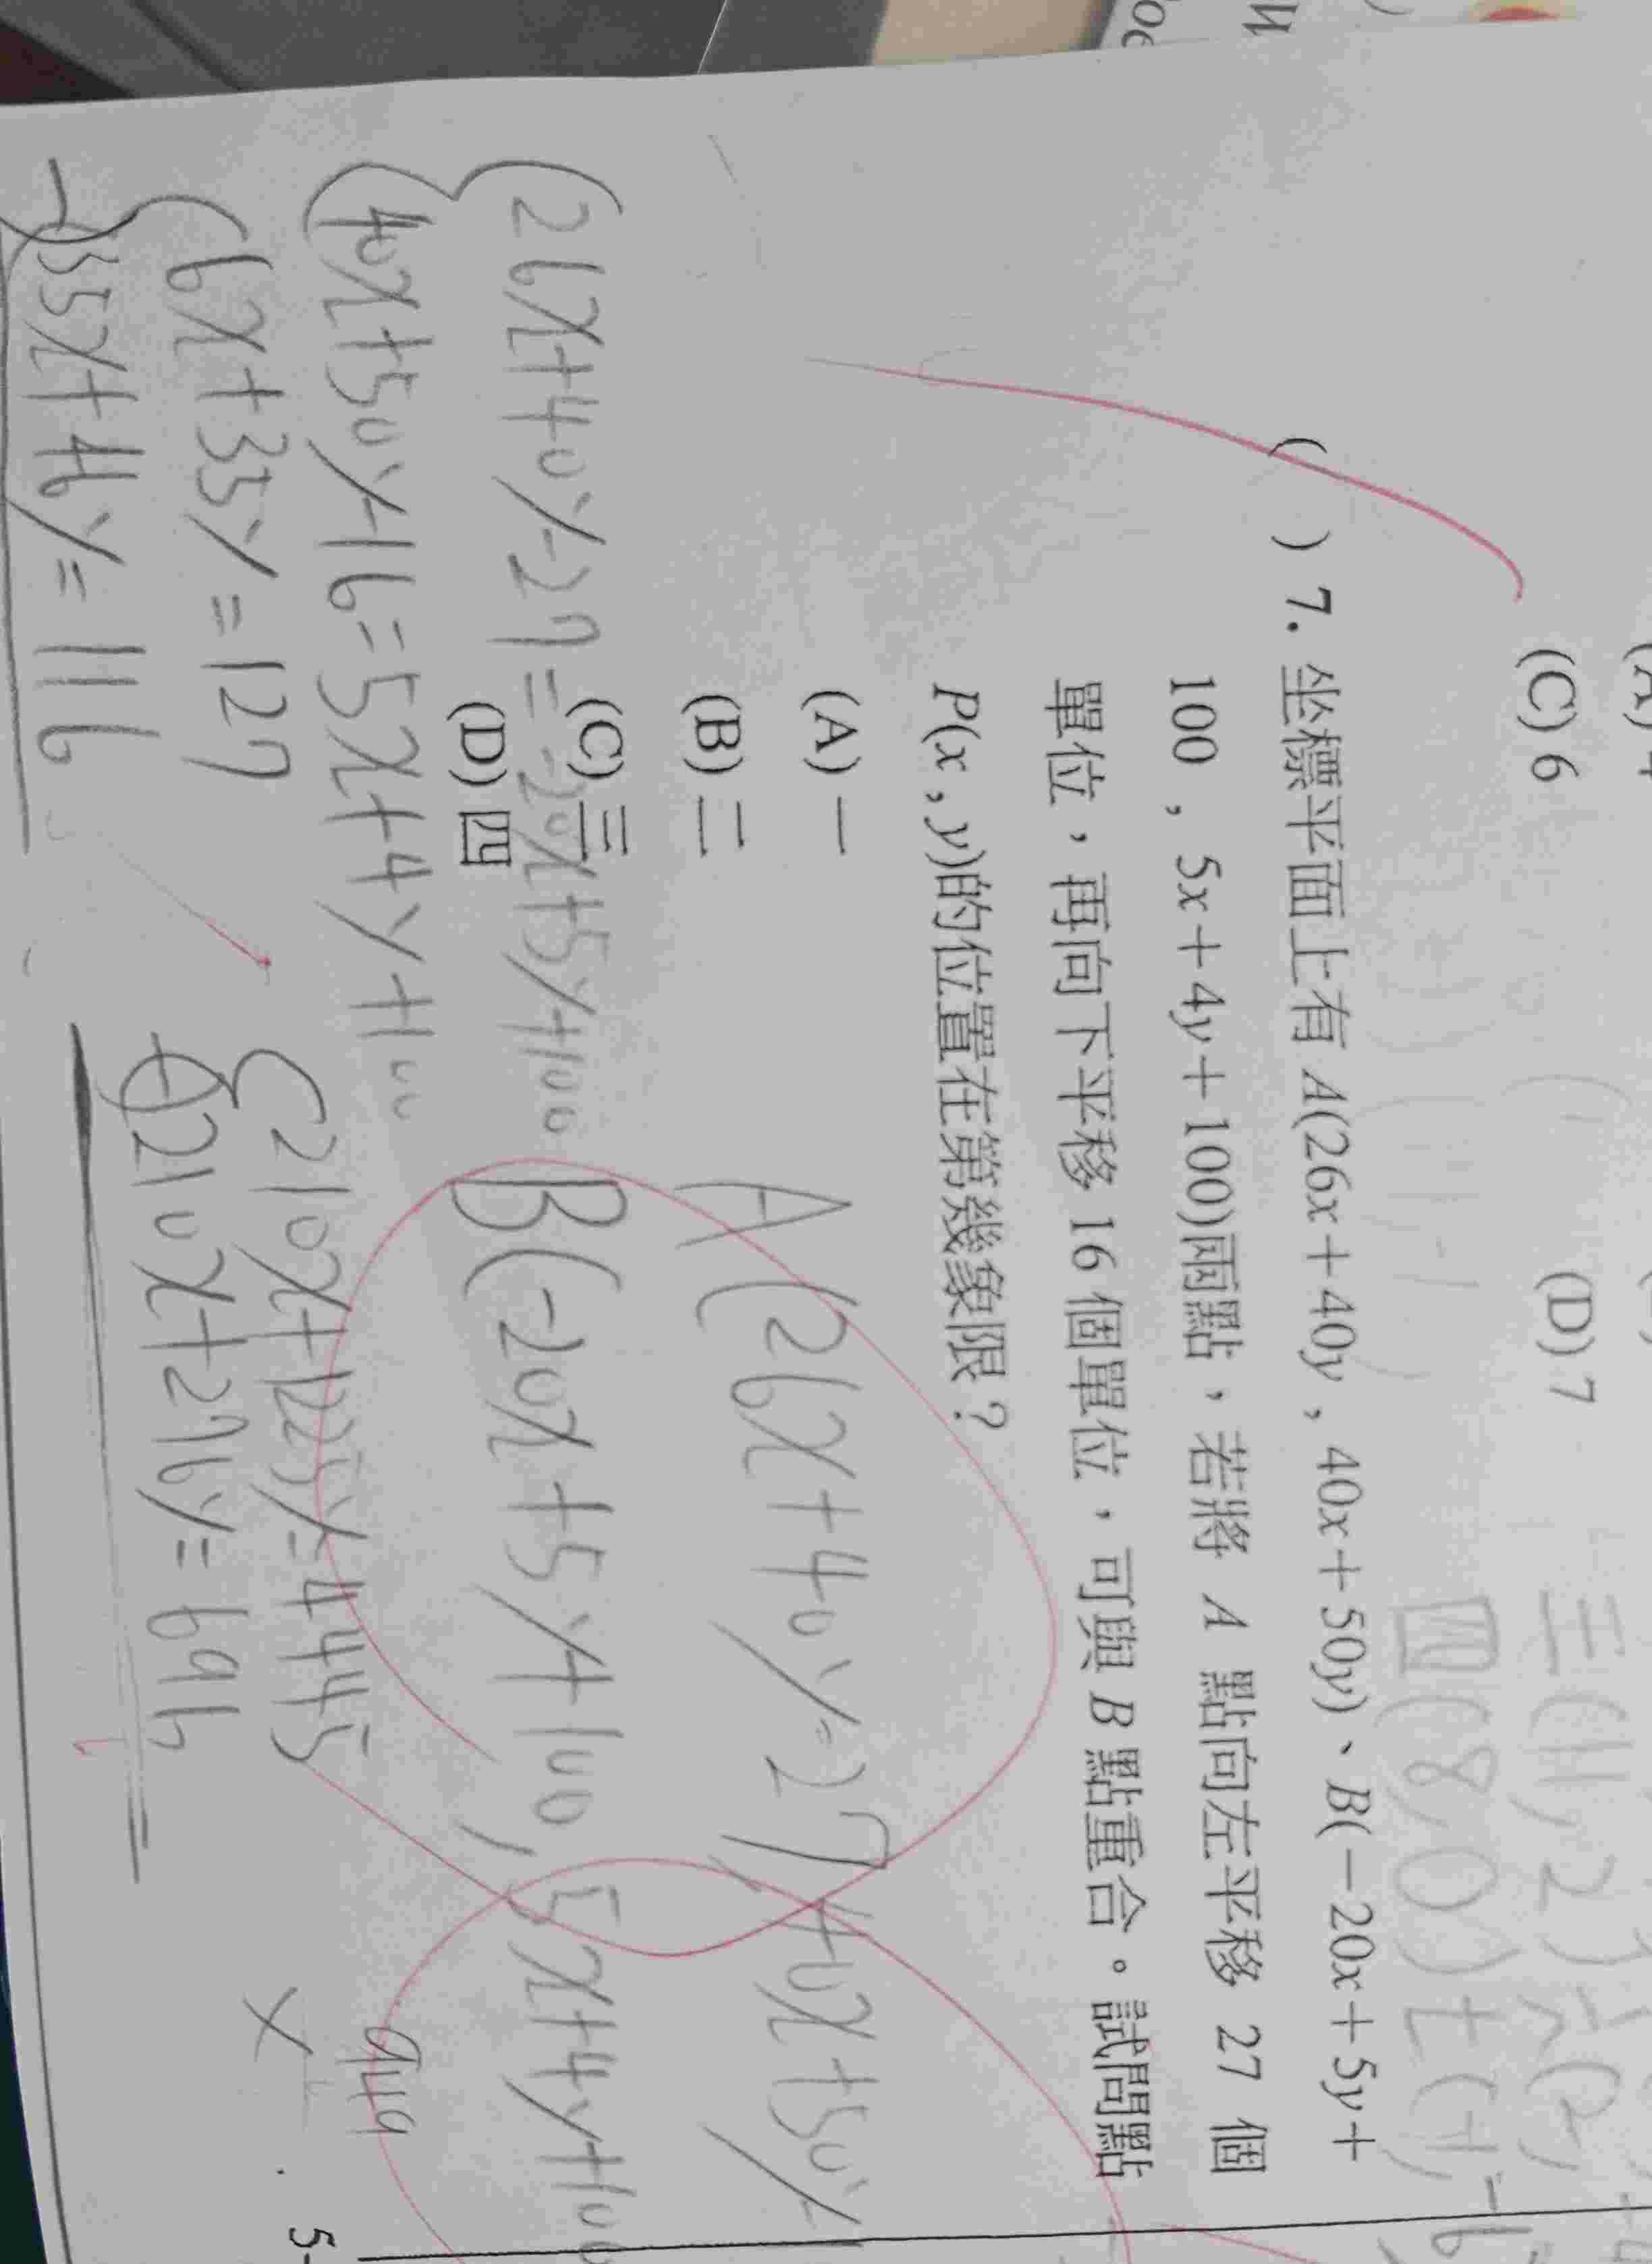 (C) 6 (D) 7
( ) 7. 坐標平面上有 A(26x＋40y , 40x＋50y)、B(－20x＋5y＋
100 , 5x＋4y＋100)兩點，若將 A 點向左平移 27 個
單位，再向下平移 16 個單位，可與 B 點重合。試問點
P(x , y)的位置在第幾象限？
(A) 一
(B) 二
(C) 三
(D) 四
A(26x+40y-27, 40x+50y-
B(-20x+5y+100, 5x+4y+100
26x+40y-27=-20x+5y+100
40x+50y-16=5x+4y+100
6x+35y=127
35x+46y=116
210x+1225y=4445
210x+276y=696
949
5-